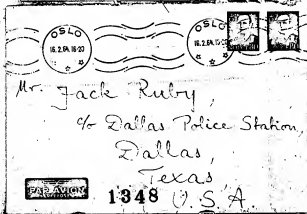 OSLO
16.2.64.16-20
OSLO
16.2.64.
Mr. Jack Ruby,
℅ Dallas Police Station,
Dallas,
Texas
U. S. A.
PAR AVION
1348